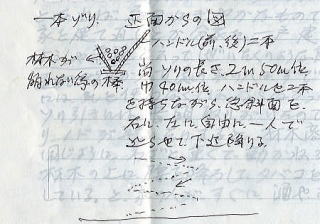 一本ぞり、 正面からの図
ハンドル(前、後)二本
材木が
崩れない為の棒
ソリの長さ、2m50cm位
巾40cm位、ハンドルを二本
を持ちながら、急斜面を、
右に、左に自由に一人で
走らせて下に降りる